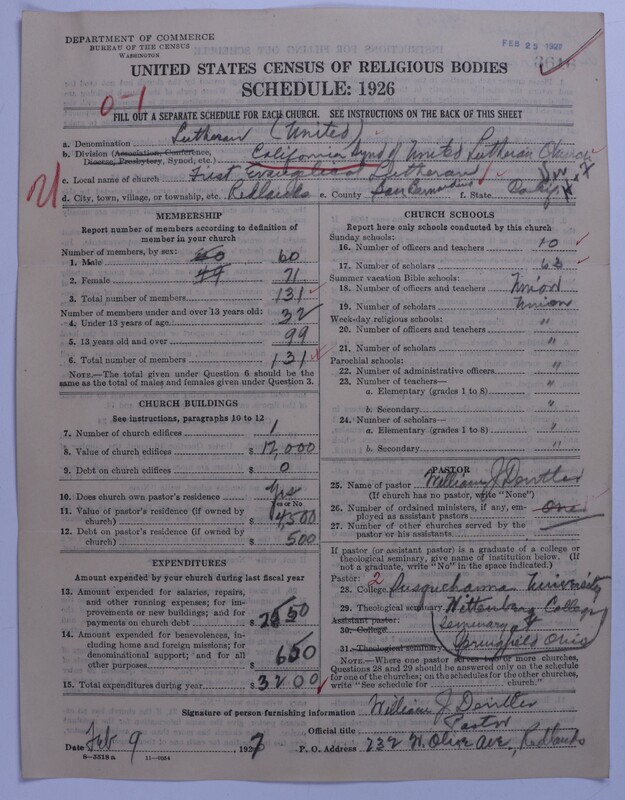 DEPARTMENT OF COMMERCE
BUREAU OF THE CENSUS
WASHINGTON
FEB 25 1927
3616
UNITED STATES CENSUS OF RELIGIOUS BODIES
SCHEDULE: 1926
0-1
FILL OUT A SEPARATE SCHEDULE FOR EACH CHURCH. SEE INSTRUCTIONS ON THE BACK OF THIS SHEET
a. Denomination Lutheran (United)
b. Division (Association, Conference, Diocese, Presbytery, Synod, etc.) California Synod United Lutheran Church
c. Local name of church First Evangelical Lutheran
d. City, town, village, or township, etc. Redlands e. County San Bernardino f. State Calif
MEMBERSHIP
Report number of members according to definition of member in your church
Number of members, by sex:
1. Male 60 60
2. Female 49 71
3. Total number of members 131
Number of members under and over 13 years old:
4. Under 13 years of age 32
5. 13 years old and over 99
6. Total number of members 131
NOTE.—The total given under Question 6 should be the same as the total of males and females given under Question 3.
CHURCH BUILDINGS
See instructions, paragraphs 10 to 12
7. Number of church edifices 1
8. Value of church edifices $ 12,000
9. Debt on church edifices $ 0
10. Does church own pastor's residence Yes
Yes or No
11. Value of pastor's residence (if owned by church) $ 4500
12. Debt on pastor's residence (if owned by church) $ 500
EXPENDITURES
Amount expended by your church during last fiscal year
13. Amount expended for salaries, repairs, and other running expenses; for improvements or new buildings; and for payments on church debt $ 2550
14. Amount expended for benevolences, including home and foreign missions; for denominational support; and for all other purposes $ 650
15. Total expenditures during year $ 3200
CHURCH SCHOOLS
Report here only schools conducted by this church
Sunday schools:
16. Number of officers and teachers 10
17. Number of scholars 63
Summer vacation Bible schools:
18. Number of officers and teachers Union
19. Number of scholars Union
Week-day religious schools:
20. Number of officers and teachers "
21. Number of scholars "
Parochial schools:
22. Number of administrative officers "
23. Number of teachers—
a. Elementary (grades 1 to 8) "
b. Secondary "
24. Number of scholars—
a. Elementary (grades 1 to 8) "
b. Secondary "
PASTOR
25. Name of pastor William J. Dentler
(If church has no pastor, write "None")
26. Number of ordained ministers, if any, employed as assistant pastors one
27. Number of other churches served by the pastor or his assistants
If pastor (or assistant pastor) is a graduate of a college or theological seminary, give name of institution below. (If not a graduate, write "No" in the space indicated.)
Pastor: 2
28. College Susquehanna University
29. Theological seminary Wittenberg College
Assistant pastor: Seminary at
30. College Springfield Ohio
31. Theological seminary
NOTE.—Where one pastor serves two or more churches, Questions 28 and 29 should be answered only on the schedule for one of the churches; on the schedules for the other churches, write "See schedule for church."
Signature of person furnishing information William J. Dentler
Official title Pastor
Date Feb 9, 1927 P. O. Address 232 W. Olive Ave, Redlands
8—5518a 11—9624